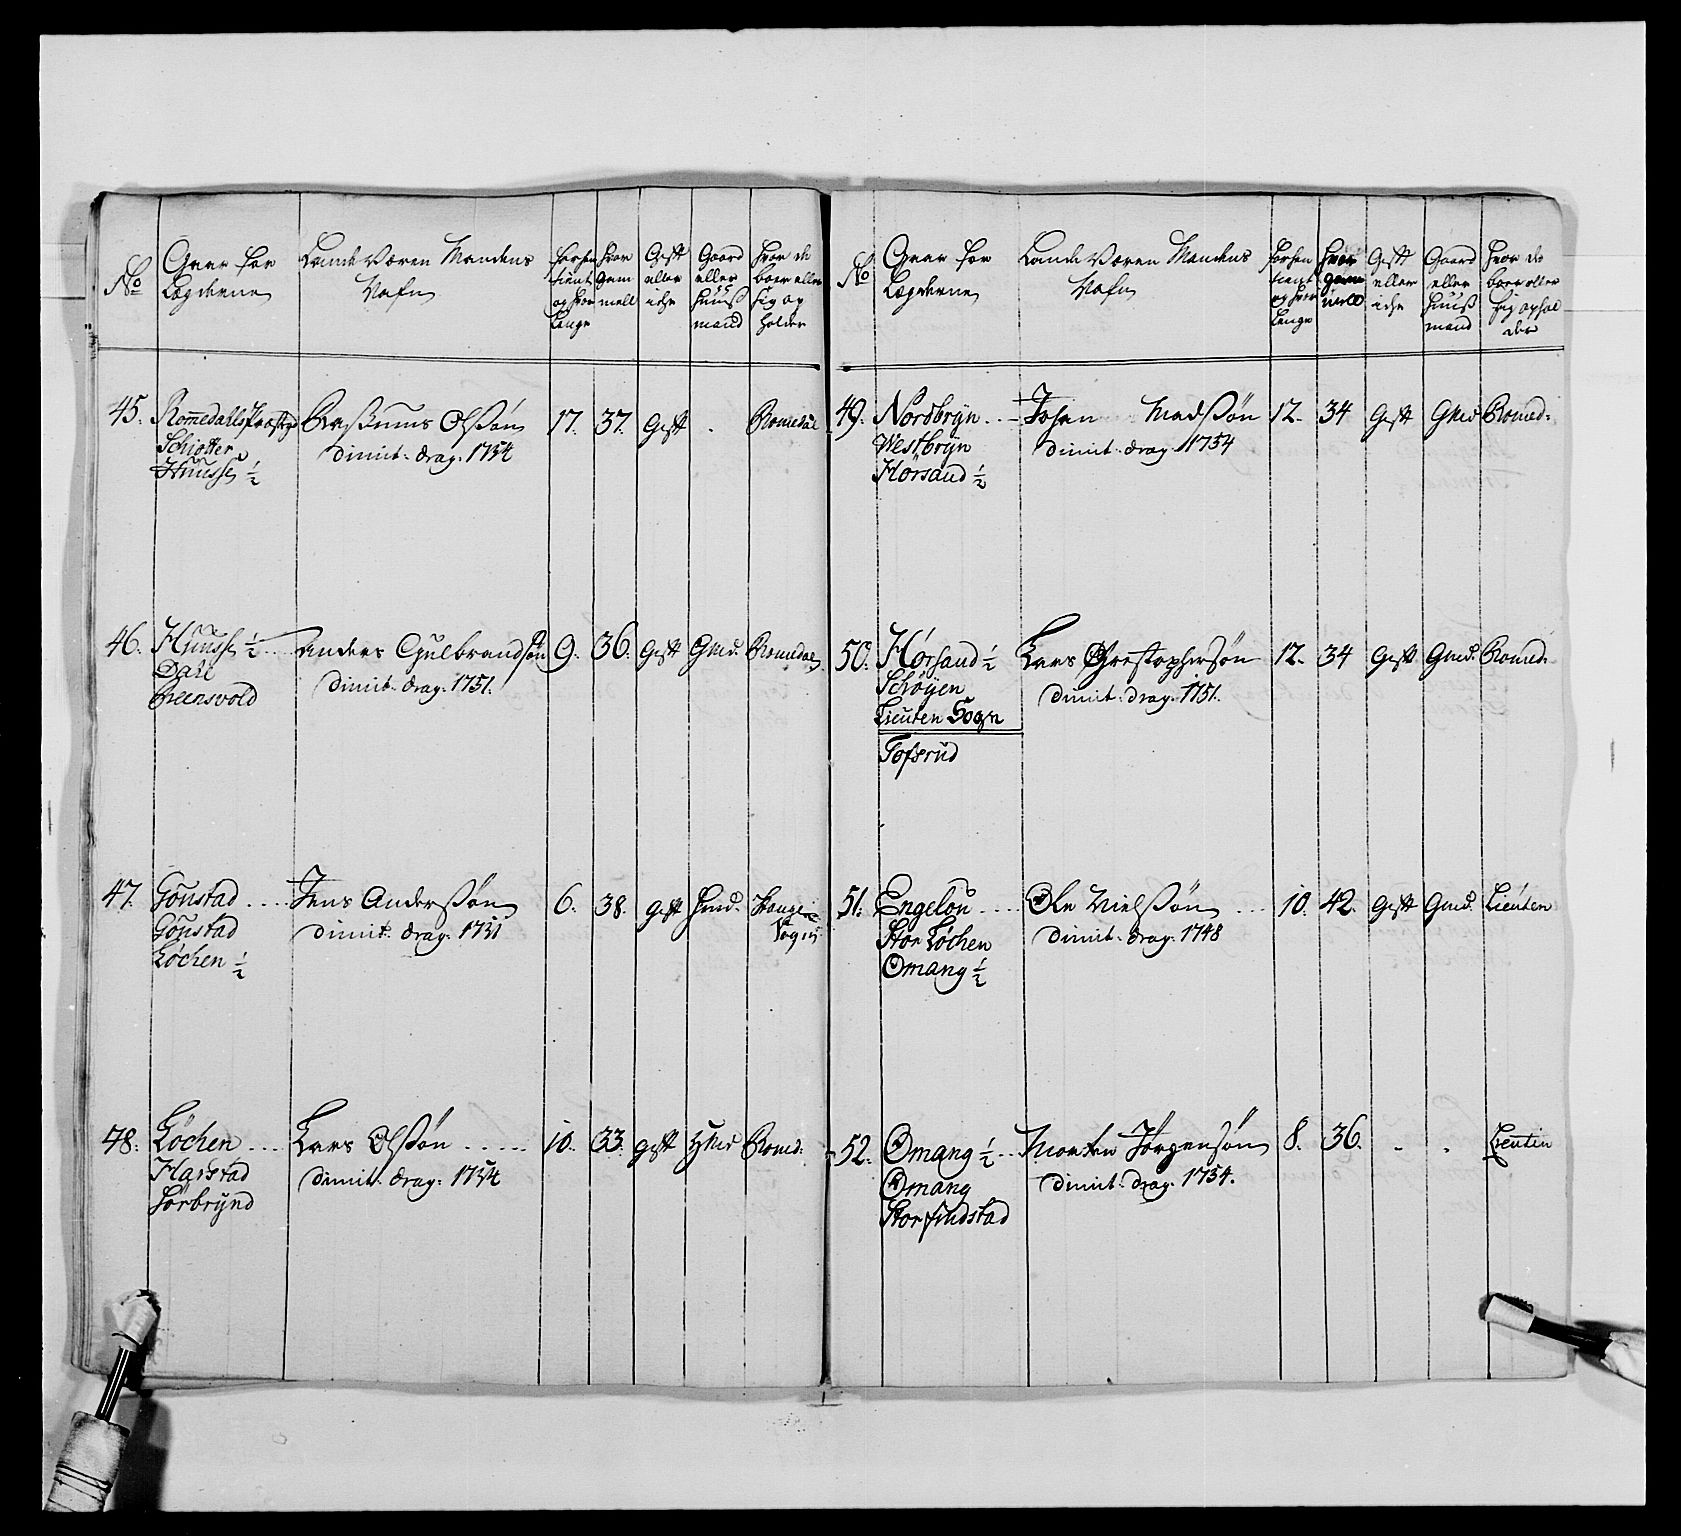 No
Gaar for
Lægderne
Lande Væren Mandens
Nafn
forhen
tient
og hvor
Lenge
hvor
gam
mell
Gift
eller
iche
Gaard
eller
Huuß
mand
hvor de
boer eller
sig op
holder
45.
Romedalls Præstgd
Schiøtter
Huusse ½
Raßmus Olßøn
dimit: drag: 1754
17.
37.
Gift
.
Romedal
46.
Huusse ½
Dahl
Greensvold
Anders Gulbrandsøn
dimit: drag: 1751.
9.
36.
Gift
Gmd.
Romedal
47.
Gönstad
Gönstad
Løchen ½
Jens Anderßøn
dimit: drag: 1751
6.
38.
gift
Hmd.
Stange
Sogn
48.
Løchen
Harstad
Sørbrynd
Lars Olßøn
dimit: drag: 1754
10.
33.
gift
Hmd
Romd:
No
Gaar for
Lægderne
Lande Væren Mandens
Nafn
forhen
tient
og hvor
Lenge
hvor
gam
mell
Gift
eller
iche
Gaard
eller
Huuß
mand
hvor de
boer eller
sig ophol
der
49.
Nordbryn
Westbryn
Horsand ½
Johan Madßøn
dimit: drag: 1754
12.
34
Gift
Gmd
Romed:
50.
Horsand ½
Schøyen
Lieuten Sogn
Tofsrud
Lars Chrestophersøn
dimit: drag: 1751.
12.
34
Gift
Gmd.
Romed:
51.
Engelou
Stor Løchen
Omang ½
Ole Nielßøn
dimit: drag: 1748
10.
42.
Gift
Gmd.
Lieuten
52.
Omang ½
Omang
Stor findstad
Morten Jørgensøn
dimit: drag: 1754.
8.
36.
.
.
Lieuten